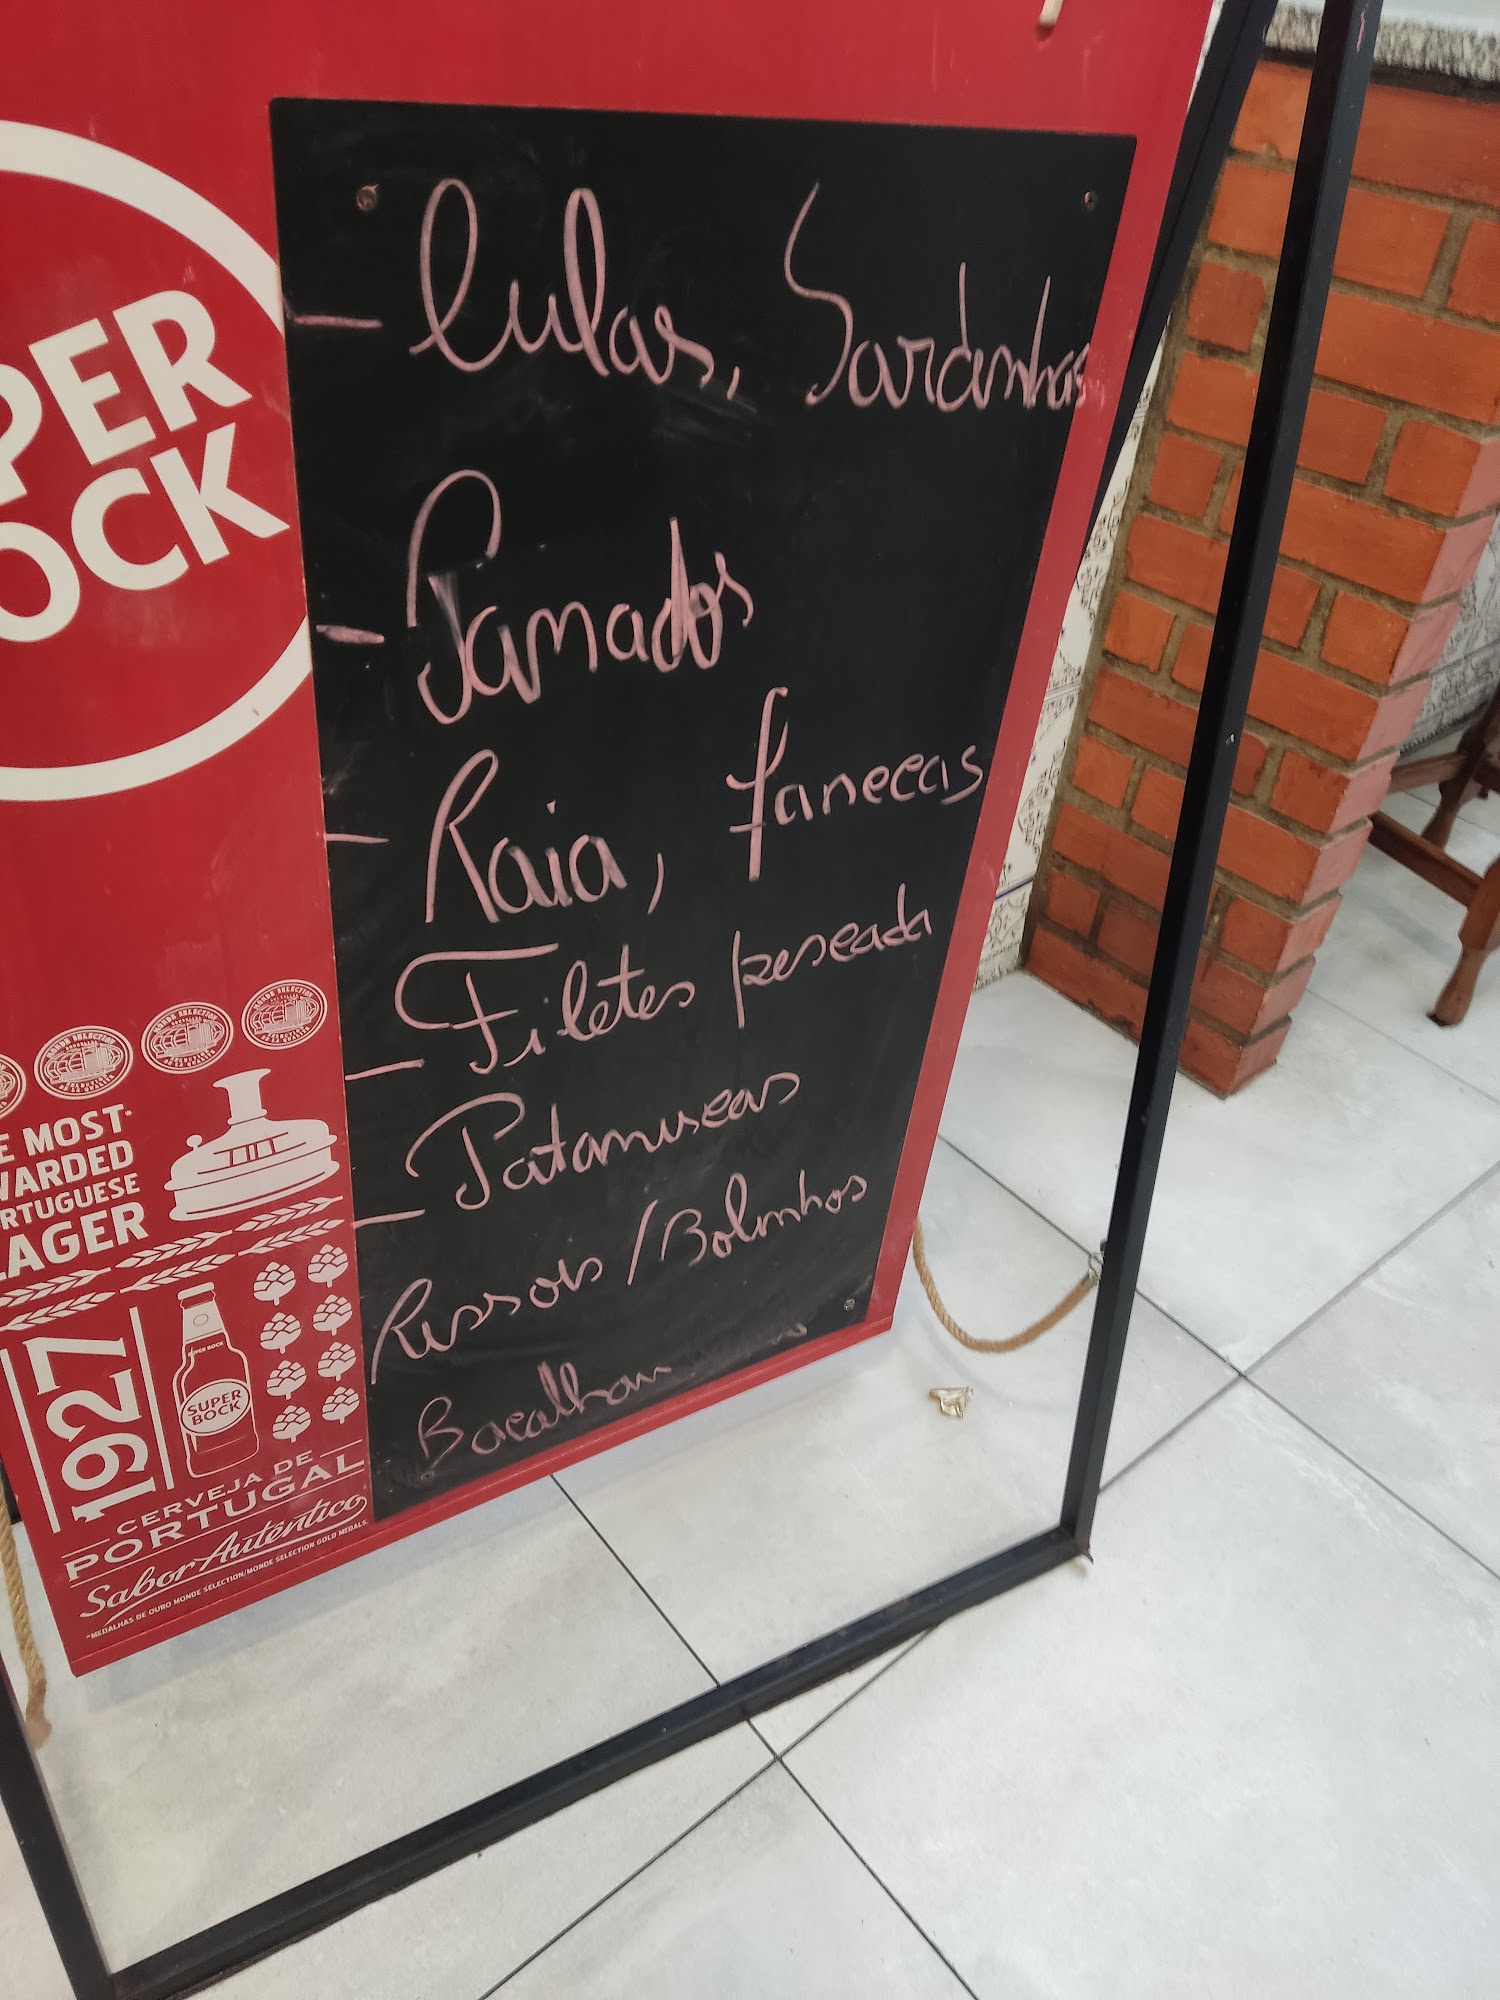 PER
OCK
- lulas, Sardinhas
- Panados
- Raia, fanecas
- Filetes pescada
- Pataniscas
Rissois / Bolinhos
Bacalhau
MONDE SELECTION
MONDE SELECTION
MONDE SELECTION
E MOST-
WARDED
RTUGUESE
LAGER
1927
SUPER BOCK
SUPER
BOCK
CERVEJA DE
PORTUGAL
Sabor Autêntico
*MEDALHAS DE OURO MONDE SELECTION/MONDE SELECTION GOLD MEDALS.